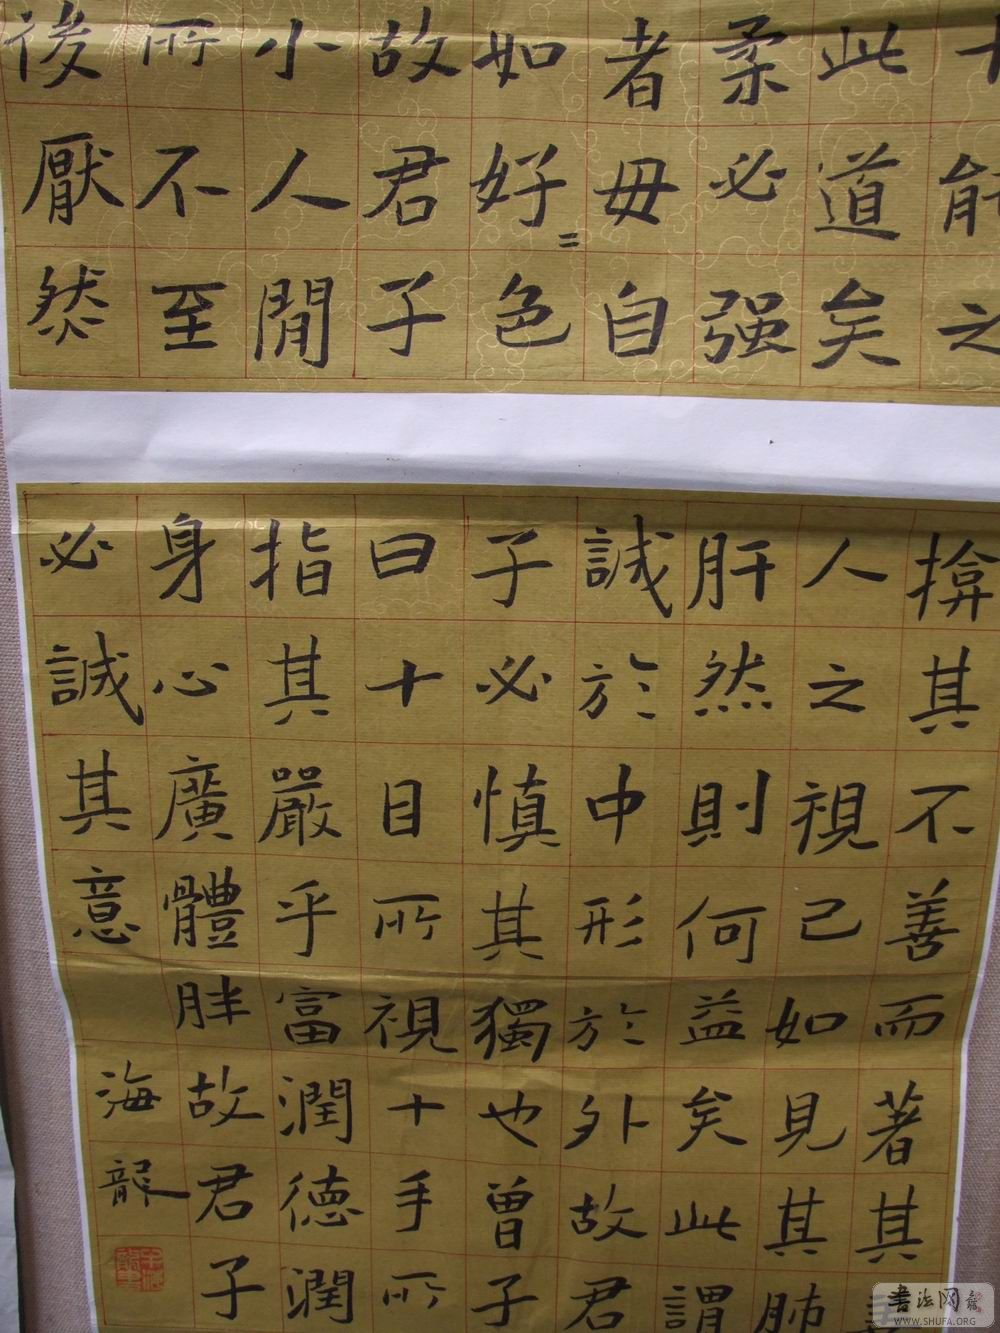 能之
此道矣
柔必强
者毋自
如好=色
故君子
小人閒
所不至
後厭然
揜其不善而著其
人之視己如見其肺
肝然則何益矣此謂
誠於中形於外故君
子必慎其獨也曾子
曰十目所視十手所
指其嚴乎富潤德潤
身心廣體胖故君子
必誠其意
海龍
书法网
WWW.SHUFA.ORG